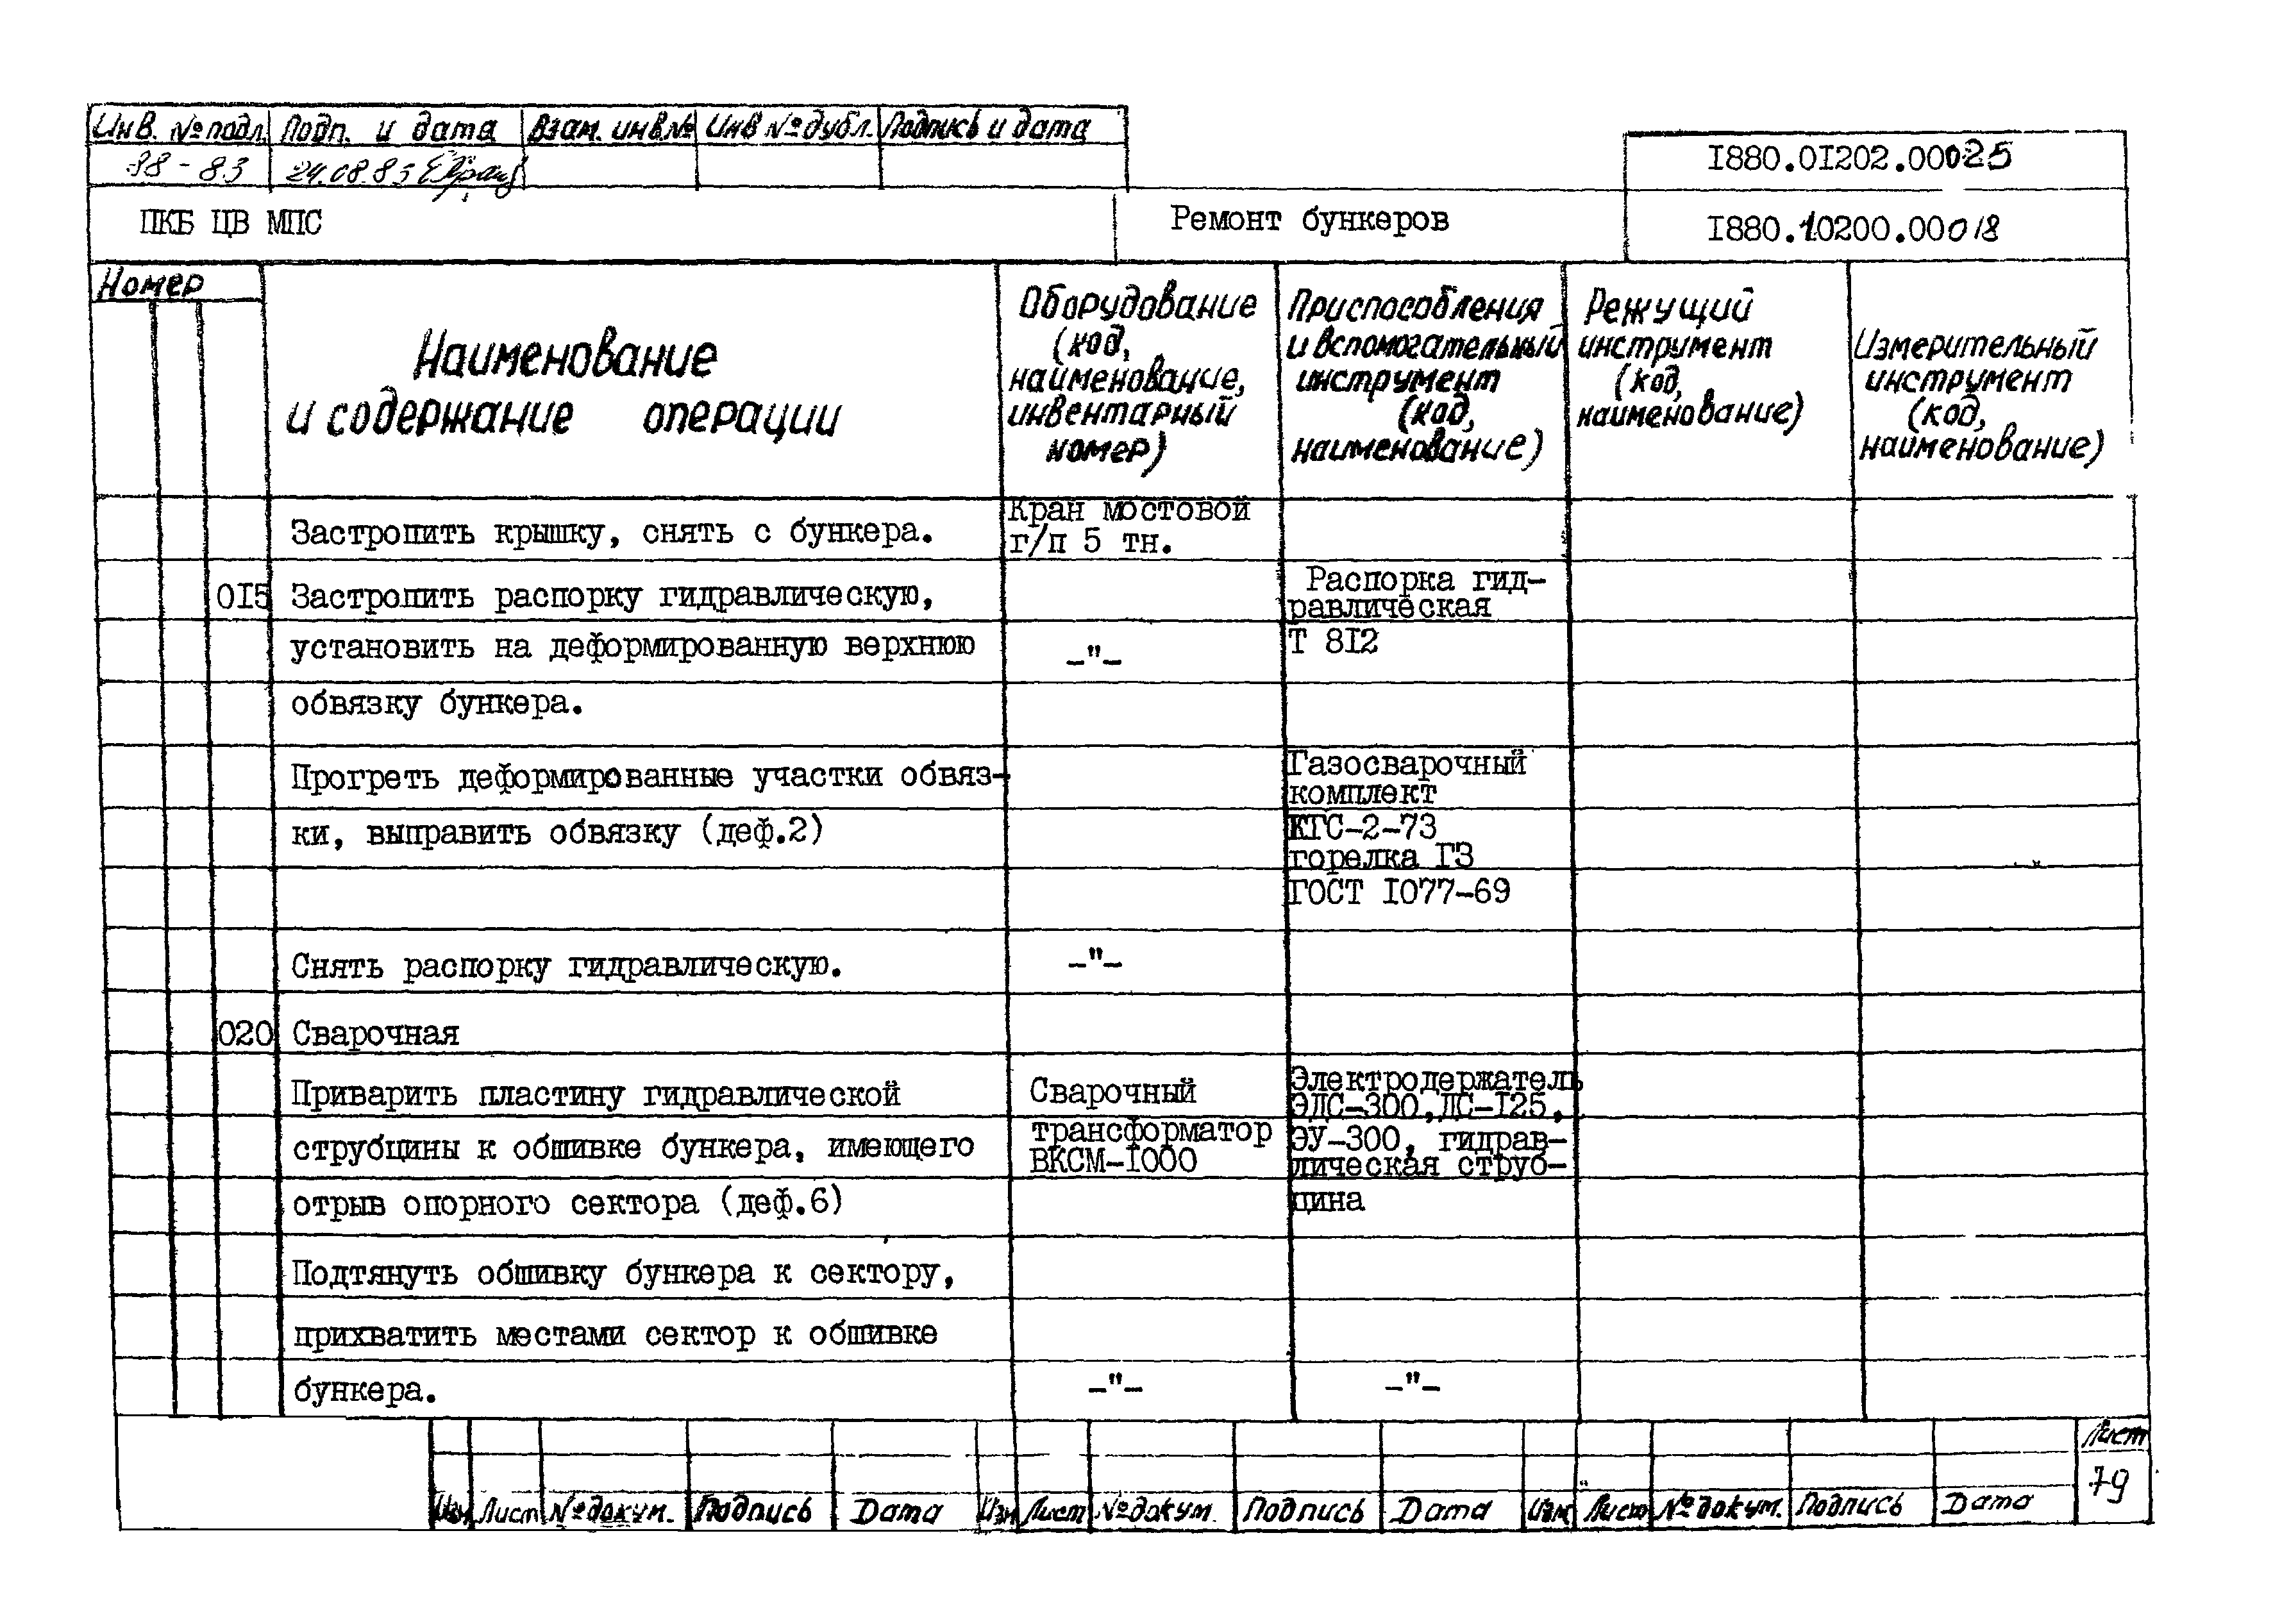 Инв. № подл. Подп. и дата Взам. инв.№ Инв № дубл. Подпись и дата
38-83 24.08.83
I880.0I202.00025
ПКБ ЦВ МПС Ремонт бункеров I880.10200.00018
Номер
Наименование
и содержание операции
Оборудование
(код,
наименование,
инвентарный
номер)
Приспособления
и вспомогательный
инструмент
(код,
наименование)
Режущий
инструмент
(код,
наименование)
Измерительный
инструмент
(код,
наименование)
Застропить крышку, снять с бункера.
Кран мостовой
г/п 5 тн.
0I5 Застропить распорку гидравлическую,
установить на деформированную верхнюю
обвязку бункера.
-"-
Распорка гид-
равлическая
Т 8I2
Прогреть деформированные участки обвяз-
ки, выправить обвязку (деф.2)
Газосварочный
комплект
КГС-2-73
горелка Г3
ГОСТ I077-69
Снять распорку гидравлическую. -"-
020 Сварочная
Приварить пластину гидравлической
струбцины к обшивке бункера, имеющего
отрыв опорного сектора (деф.6)
Сварочный
трансформатор
ВКСМ-I000
Электродержатель
ЭДС-300,ДС-I25,
ЭУ-300, гидрав-
лическая струб-
цина
Подтянуть обшивку бункера к сектору,
прихватить местами сектор к обшивке
бункера. -"- -"-
Изм Лист № докум. Подпись Дата Изм Лист № докум. Подпись Дата Изм Лист № докум. Подпись Дата
Лист
79